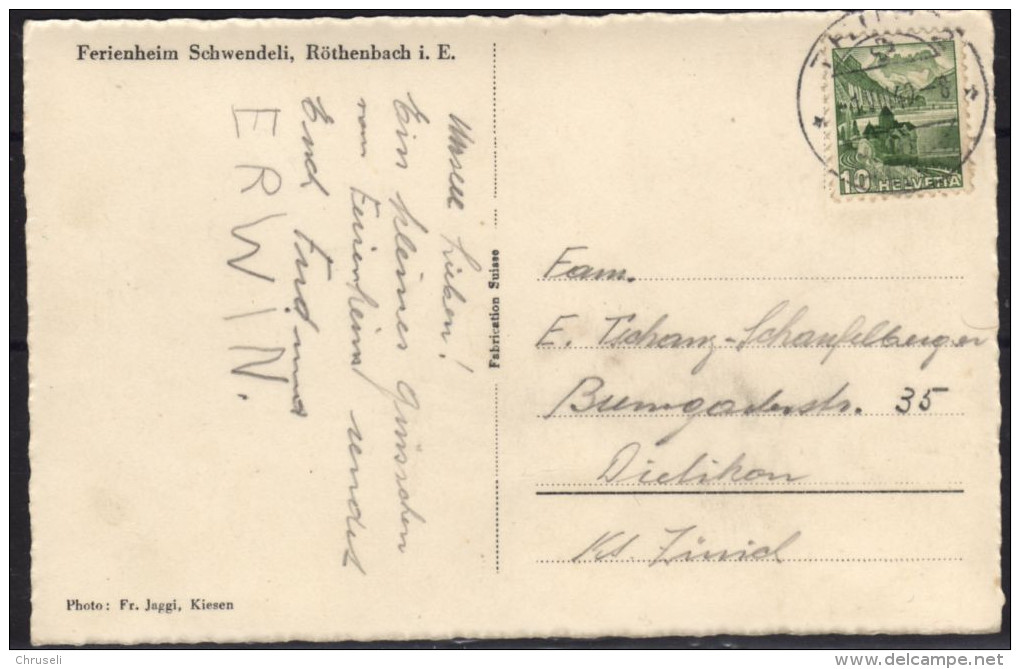 Ferienheim Schwendeli, Röthenbach i. E.
Unsere Lieben!
Ein kleines Grüsschen
vom Ferienheim sendet
Euch Trudi und
ERWIN.
Fabrication Suisse
10 HELVETIA
Fam.
E. Tschanz-Schaufelberger
Bumgarterstr. 35
Dietikon
Kt. Zürich
Photo: Fr. Jaggi, Kiesen
© Chruseli
http://www.delcampe.net